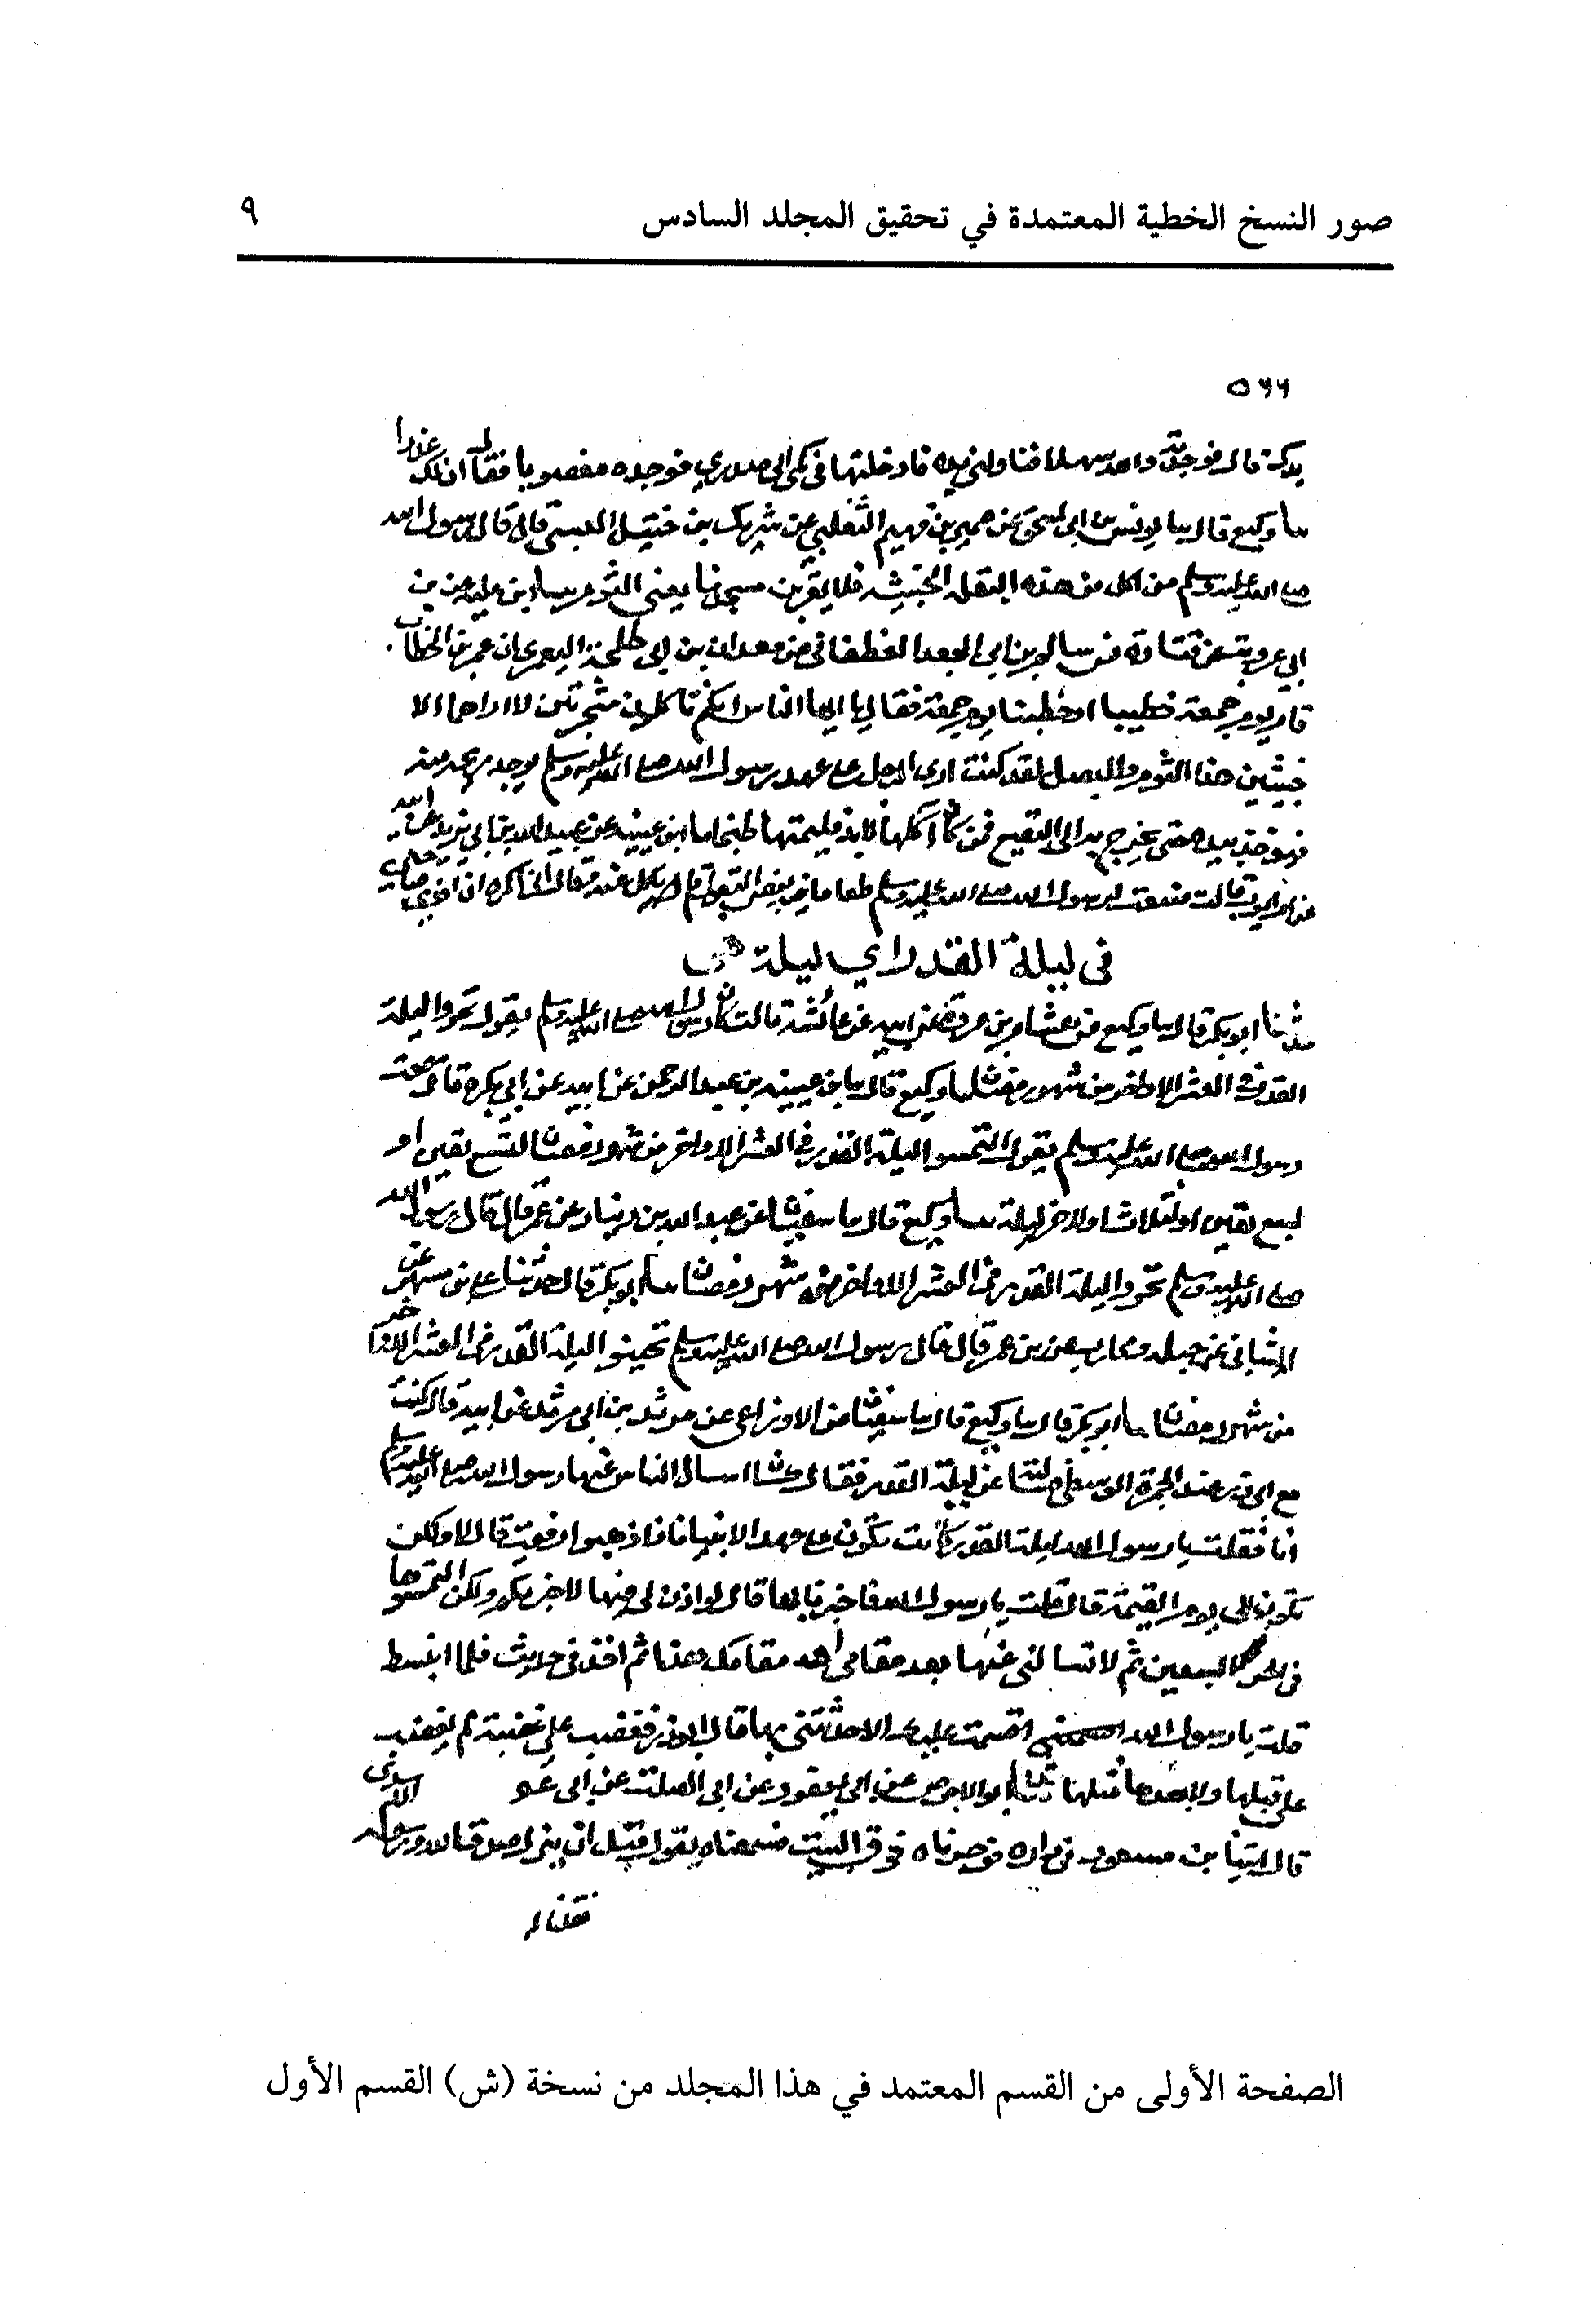 صور النسخ الخطية المعتمدة في تحقيق المجلد السادس ٩
٥٦٦
يدك قال فوجدته واهد سهلا فناولني يده فادخلتها في كمي الى صدري فوجده معصوبا فقال ان لك عذرا
وكيع قال يونس بن ابي اسحق عن عمير بن قميم الثعلبي عن شريك بن حنبل العبسي قال قال رسول الله
صلى الله عليه وسلم من اكل من هذه البقلة الخبيثة فلا يقربن مسجدنا يعني الثوم ابن علية عن بن
ابي عروبة عن قتادة عن سالم بن ابي الجعد الغطفاني عن معدان بن ابي طلحة اليعمري ان عمر بن الخطاب
قام يوم جمعة خطيبا او خطبنا يوم جمعة فقال يا ايها الناس انكم تاكلون شجرتين لا اراهما الا
خبيثين هذا الثوم والبصل لقد كنت ارى الرجل على عهد رسول الله صلى الله عليه وسلم يوجد ريحه منه
فيوخذ بيده حتى يخرج به الى البقيع فمن كان اكلها لابد فليمتها طبخا ابن عيينة عن عبيد الله بن ابي يزيد عن
عن ام ايوب قالت صنعت لرسول الله صلى الله عليه وسلم طعاما فيه بعض البقول فلم ياكل منه وقال اني اكره ان اوذي صاحبي
في ليلة القدر اي ليلة هي
حدثنا ابو بكر قال وكيع عن هشام بن عروة عن ابيه عن عائشة قالت كان رسول الله صلى الله عليه وسلم يقول تحروا ليلة
القدر في العشر الاواخر من شهر رمضان وكيع قال بن عيينة بن عبد الرحمن عن ابيه عن ابي بكرة قال سمعت
رسول الله صلى الله عليه وسلم يقول التمسوا ليلة القدر في العشر الاواخر من شهر رمضان لتسع بقين او
لسبع بقين او لثلاث او لاخر ليلة وكيع قال سفيان عن عبد الله بن دينار عن عمر قال قال رسول الله
صلى الله عليه وسلم تحروا ليلة القدر في العشر الاواخر من شهر رمضان ابو بكر قال حدثنا علي بن مسهر عن
الشيباني عن جبلة ومحارب عن بن عمر قال قال رسول الله صلى الله عليه وسلم تحينوا ليلة القدر في العشر الاواخر
من شهر رمضان ابو بكر قال وكيع قال سفيان عن الاوزاعي عن مرثد بن ابي مرثد عن ابيه قال كنت
مع ابي ذر عند الجمرة الوسطى عن ليلة القدر فقال كان اسال الناس عنها رسول الله صلى الله عليه وسلم
انا فقلت يا رسول الله ليلة القدر كانت تكون على عهد الانبياء فاذا ذهبوا رفعت قال لا ولكن
تكون الى يوم القيمة قال قلت يا رسول الله فاخبرنا بها قال لو اذن لي فيها لاخبرتكم ولكن التمسوها
في احد السبعين ثم لا تسالني عنها بعد مقامي ومقامك هذا ثم اخذ في حديث فلما انبسط
قلت يا رسول الله اقسمت عليك الا حدثتني بها قال ابو ذر فغضب علي غضبة لم يغضب
علي قبلها ولا بعدها مثلها ابو الاحوص عن ابي يعفور عن ابي الصلت عن ابي عـ الاسدي
قال اتينا بن مسعود في داره فوجدناه فوق البيت فسمعناه يقول قبل ان ينزل صدق الله ورسوله
فقلنا له
الصفحة الأولى من القسم المعتمد في هذا المجلد من نسخة (ش) القسم الأول